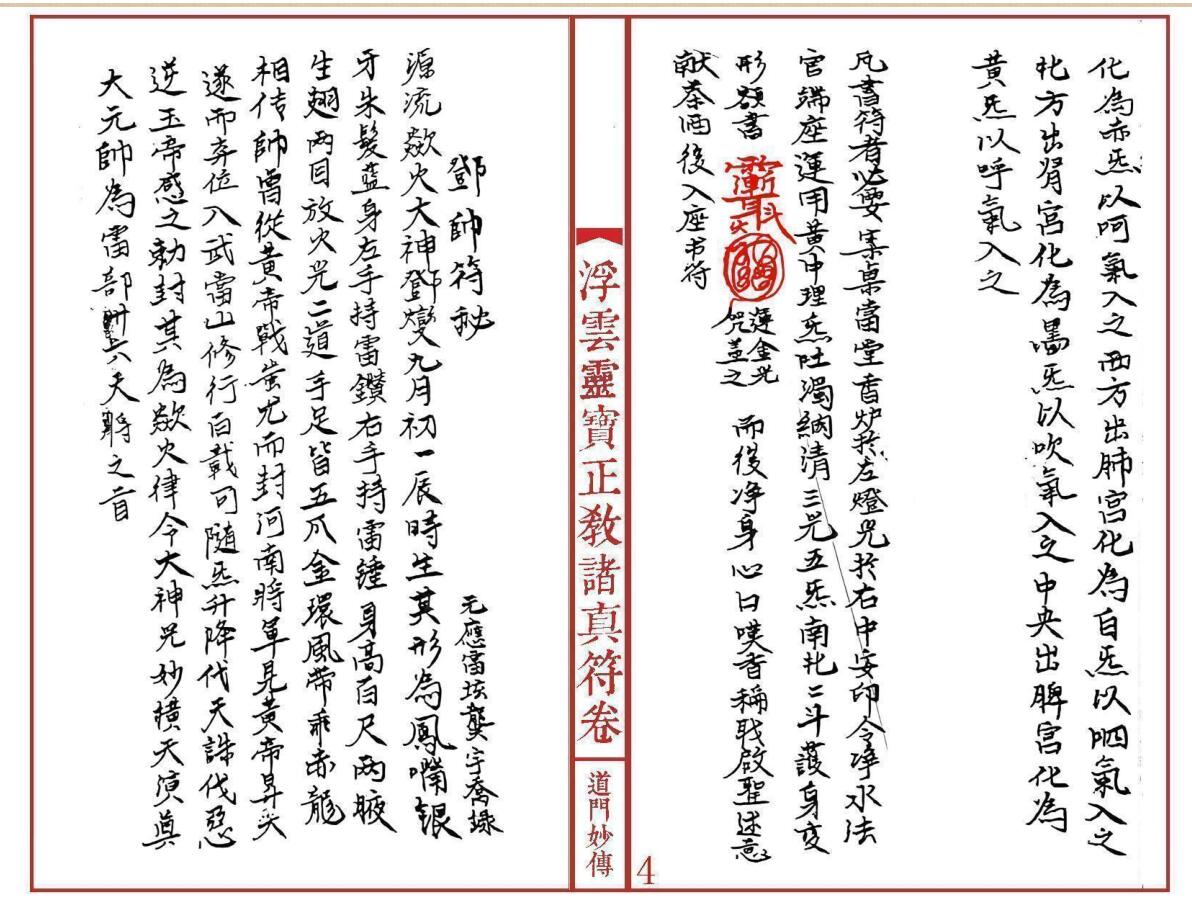 化為赤炁以呵氣入之西方出肺宮化為白炁以呬氣入之
北方出肾宮化為黑炁以吹氣入之中央出脾宮化為
黄炁以呼氣入之
凡書符者必要案桌當堂香炉於左燈光於右中安印令净水法
官端座運用黄中理炁吐濁納清三光五炁南北二斗護身变
形額書
運金光
咒盖之
而後净身心口嘆香稱职啟聖述意
献茶酒後入座书符
4
浮雲靈寶正教諸真符卷
道門妙傳
鄧帥符秘
元應雷垓龔宇喬錄
源流欻火大神鄧燮九月初一辰時生其形為鳳嘴银
牙朱髮藍身左手持雷鑽右手持雷錘身高百尺两腋
生翅两目放火光二道手足皆五爪金環風带乖赤龍
相传帥曾從黄帝戰蚩尤而封河南將軍見黄帝昇天
遂而弃位入武當山修行百載可随炁升降代天誅伐惡
逆玉帝感之勅封其為欻火律令大神光妙横天演真
大元帥為雷部卅六天將之首